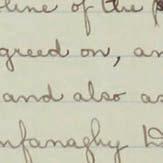 line of the
greed on, an
and also as
nfanaghy D